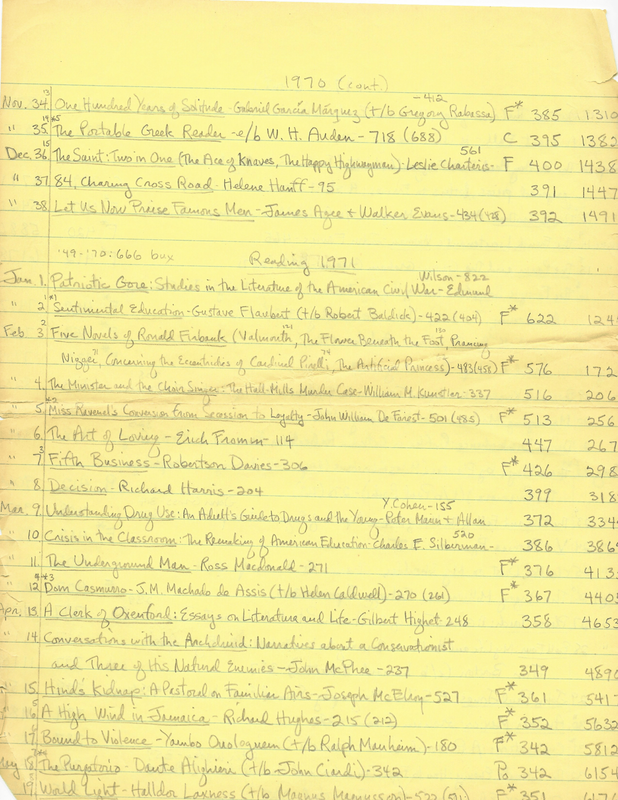 1970 (cont.)
-412
Nov. 34. One Hundred Years of Solitude - Gabriel García Márquez (t/b Gregory Rabassa) F* 385 1310
" 35. The Portable Greek Reader - e/b W. H. Auden - 718 (688) C 395 1382
561
Dec. 36. The Saint: Two in One (The Ace of Knaves, The Happy Highwayman) - Leslie Charteris - F 400 1438
" 37. 84, Charing Cross Road - Helene Hanff - 95 391 1447
" 38. Let Us Now Praise Famous Men - James Agee + Walker Evans - 434 (428) 392 1491
'49-'70: 666 bux Reading 1971
Wilson - 822
Jan 1. Patriotic Gore: Studies in the Literature of the American Civil War - Edmund
" 2. Sentimental Education - Gustave Flaubert (t/b Robert Baldick) - 422 (404) F* 622 124
Feb. 3. Five Novels of Ronald Firbank (Valmouth, The Flower Beneath the Foot, Prancing
Nigger, Concerning the Eccentricities of Cardinal Pirelli, The Artificial Princess) - 483 (458) F* 576 172
" 4. The Minister and the Choir Singer: The Hall-Mills Murder Case - William M. Kunstler - 337 516 206
" 5. Miss Ravenel's Conversion From Secession to Loyalty - John William De Forest - 501 (485) F* 513 256
" 6. The Art of Loving - Erich Fromm - 114 447 267
" 7. Fifth Business - Robertson Davies - 306 F* 426 298
" 8. Decision - Richard Harris - 204 399 318
Y. Cohen - 155
Mar. 9. Understanding Drug Use: An Adult's Guide to Drugs and the Young - Peter Marin + Allan 372 334
520
" 10. Crisis in the Classroom: The Remaking of American Education - Charles E. Silberman - 386 386
" 11. The Underground Man - Ross Macdonald - 271 F* 376 413
" 12. Dom Casmurro - J.M. Machado de Assis (t/b Helen Caldwell) - 270 (261) F* 367 440
Apr. 13. A Clerk of Oxenford: Essays on Literature and Life - Gilbert Highet - 248 358 4653
" 14. Conversations with the Archdruid: Narratives about a Conservationist
and Three of His Natural Enemies - John McPhee - 237 349 4890
" 15. Hind's Kidnap: A Pastoral on Familiar Airs - Joseph McElroy - 527 F* 361 541
" 16. A High Wind in Jamaica - Richard Hughes - 215 (212) F* 352 5632
" 17. Bound to Violence - Yambo Ouologuem (t/b Ralph Manheim) - 180 F* 342 5812
May 18. The Purgatorio - Dante Alighieri (t/b John Ciardi) - 342 Po 342 6154
19. World Light - Halldor Laxness (t/b Magnus Magnusson) - 522 F* 351